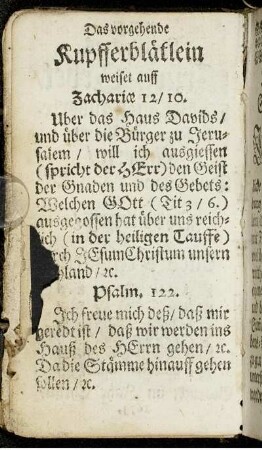 Das vorgehende
Kupfferblätlein
weiset auff
Zachariæ 12/10.
Uber das Haus Davids/
und über die Bürger zu Jeru-
salem / will ich ausgiessen
(spricht der HErr) den Geist
der Gnaden und des Gebets:
Welchen GOtt (Tit 3 / 6.)
ausgegossen hat über uns reich-
lich (in der heiligen Tauffe)
durch JEsum Christum unsern
land / ꝛc.
Psalm. 122.
Ich freue mich deß / daß mir
geredt ist / daß wir werden ins
Hauß des HErrn gehen / ꝛc.
Da die Stämme hinauff gehen
sollen / ꝛc.